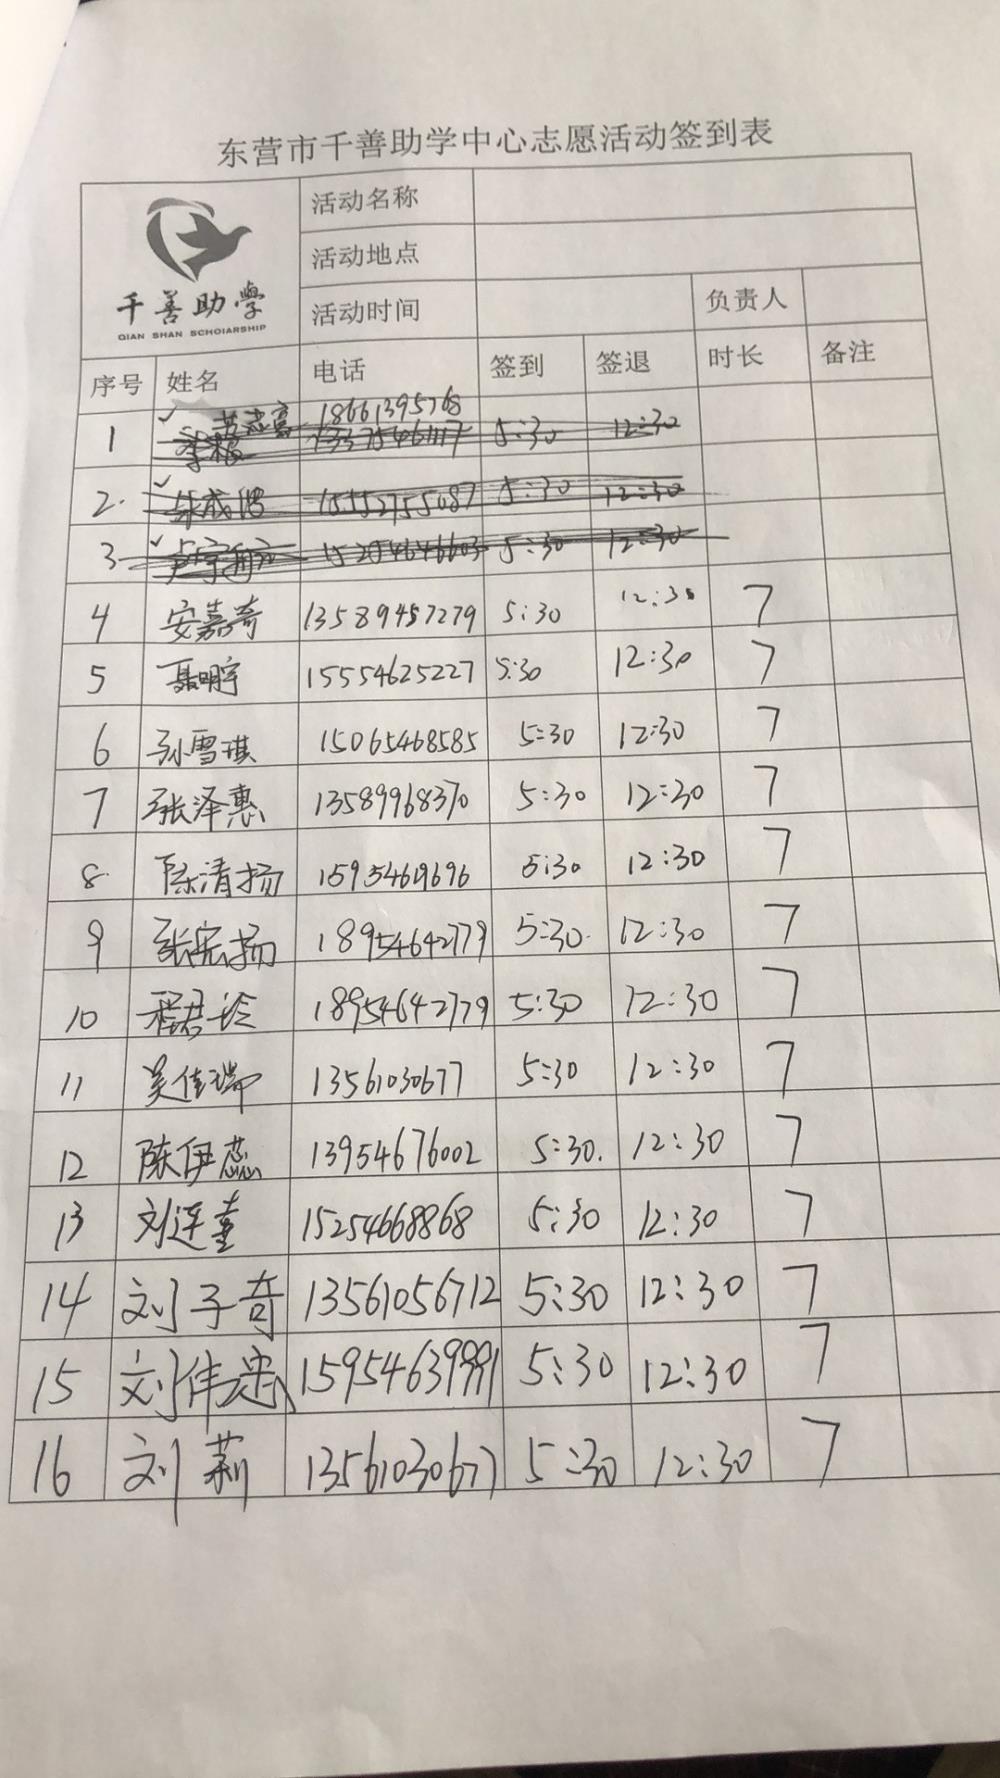 东营市千善助学中心志愿活动签到表
千善助学
QIAN SHAN SCHOLARSHIP
活动名称
活动地点
活动时间 负责人
序号 姓名 电话 签到 签退 时长 备注
18661395768
1 5:30 12:30
2. 15552755087 5:30 12:30
3 15254646603 5:30 12:30
4 安嘉奇 13589457279 5:30 12:30 7
5 聂明宇 15554625227 5:30 12:30 7
6 孙雪琪 15065468585 5:30 12:30 7
7 张泽惠 13589968370 5:30 12:30 7
8. 陈清扬 5:30 12:30 7
9 张宏扬 18954642779 5:30. 12:30 7
10 程君玲 18954642779 5:30 12:30 7
11 吴佳瑞 13561030677 5:30 12:30 7
12 陈伊蕊 13954676002 5:30. 12:30 7
13 刘连 15254668868 5:30 12:30 7
14 刘子奇 13561056712 5:30 12:30 7
15 刘伟 15954639991 5:30 12:30 7
16 刘莉 13561030677 5:30 12:30 7